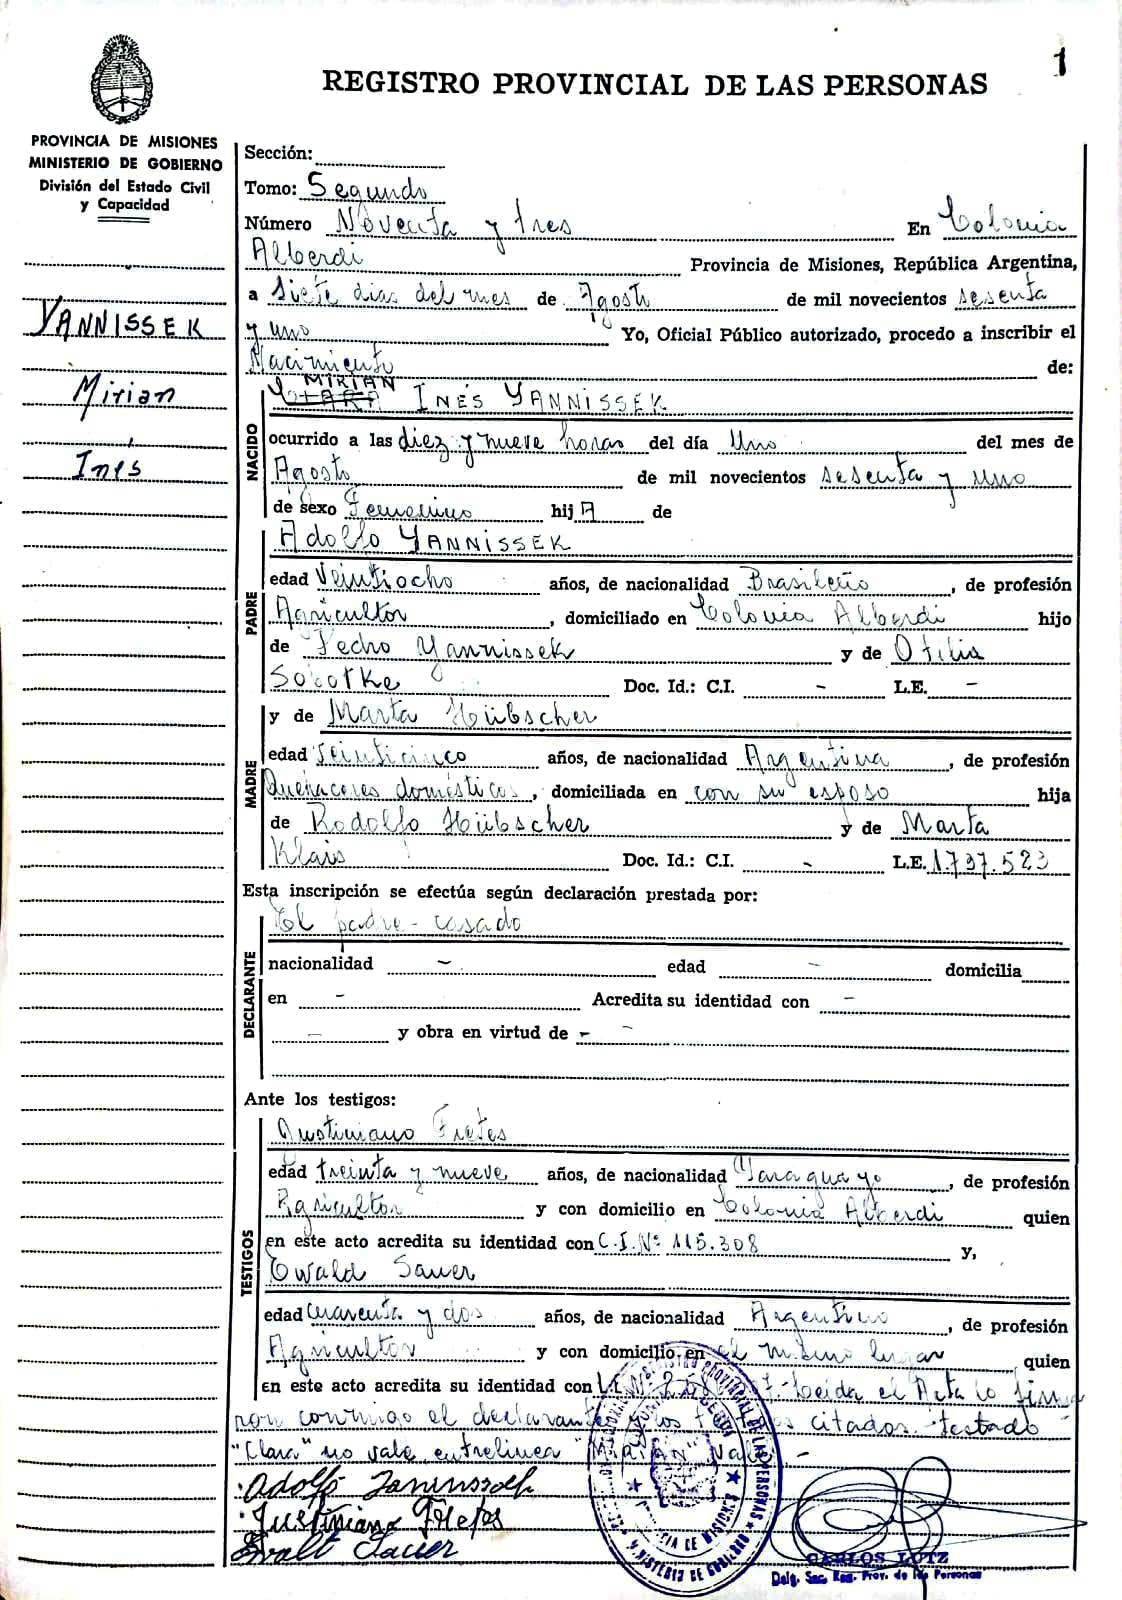 1
REGISTRO PROVINCIAL DE LAS PERSONAS
PROVINCIA DE MISIONES
MINISTERIO DE GOBIERNO
División del Estado Civil
y Capacidad
YANNISSEK
Mirian
Inés
Sección:
Tomo: Segundo
Número Noventa y tres En Colonia
Alberdi Provincia de Misiones, República Argentina,
a Siete dias del mes de Agosto de mil novecientos sesenta
y uno Yo, Oficial Público autorizado, procedo a inscribir el
Nacimiento de:
MIRIAN
INÉS YANNISSEK
NACIDO
ocurrido a las diez y nueve horas del día Uno del mes de
Agosto de mil novecientos sesenta y uno
de sexo Femenino hij A de
Adolfo YANNISSEK
PADRE
edad Veintiocho años, de nacionalidad Brasileño, de profesión
Agricultor, domiciliado en Colonia Alberdi hijo
de Pedro Yannissek y de Otilia
Sobotke Doc. Id.: C.I. - L.E. -
y de Marta Hübscher
MADRE
edad Veinticinco años, de nacionalidad Argentina, de profesión
Quehaceres domésticos, domiciliada en con su esposo hija
de Rodolfo Hübscher y de Marta
Klais Doc. Id.: C.I. - L.E. 1.737.523
Esta inscripción se efectúa según declaración prestada por:
El padre - casado
DECLARANTE
nacionalidad - edad - domicilia
en - Acredita su identidad con -
- y obra en virtud de - -
Ante los testigos:
Justiniano Fretes
TESTIGOS
edad treinta y nueve años, de nacionalidad Paraguayo, de profesión
Agricultor y con domicilio en Colonia Alberdi quien
en este acto acredita su identidad con C.I. Nº 115.308 y,
Ewald Sauer
edad cuarenta y dos años, de nacionalidad Argentino, de profesión
Agricultor y con domicilio en el mismo lugar quien
en este acto acredita su identidad con L.E. Nº Leida el Acta lo firma
ron conmigo el declarante y los citados - testado
"Clara" no vale, entrelinea "MIRIAN" vale -
Adolfo
Justiniano Fretes
Ewalt Sauer
REGISTRO PROVINCIAL DE LAS PERSONAS
MINISTERIO DE GOBIERNO
CARLOS LUTZ
Delg. Sec. Reg. Prov. de las Personas